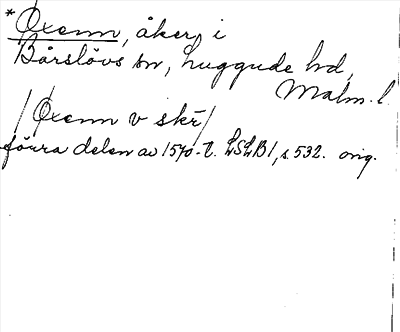 *Oxenn, åker, i
Bårslövs sn, Luggude hd,
Malm. l.
/Oxenn v skr/
förra delen av 1570-t. LSLB1, s. 532. orig.